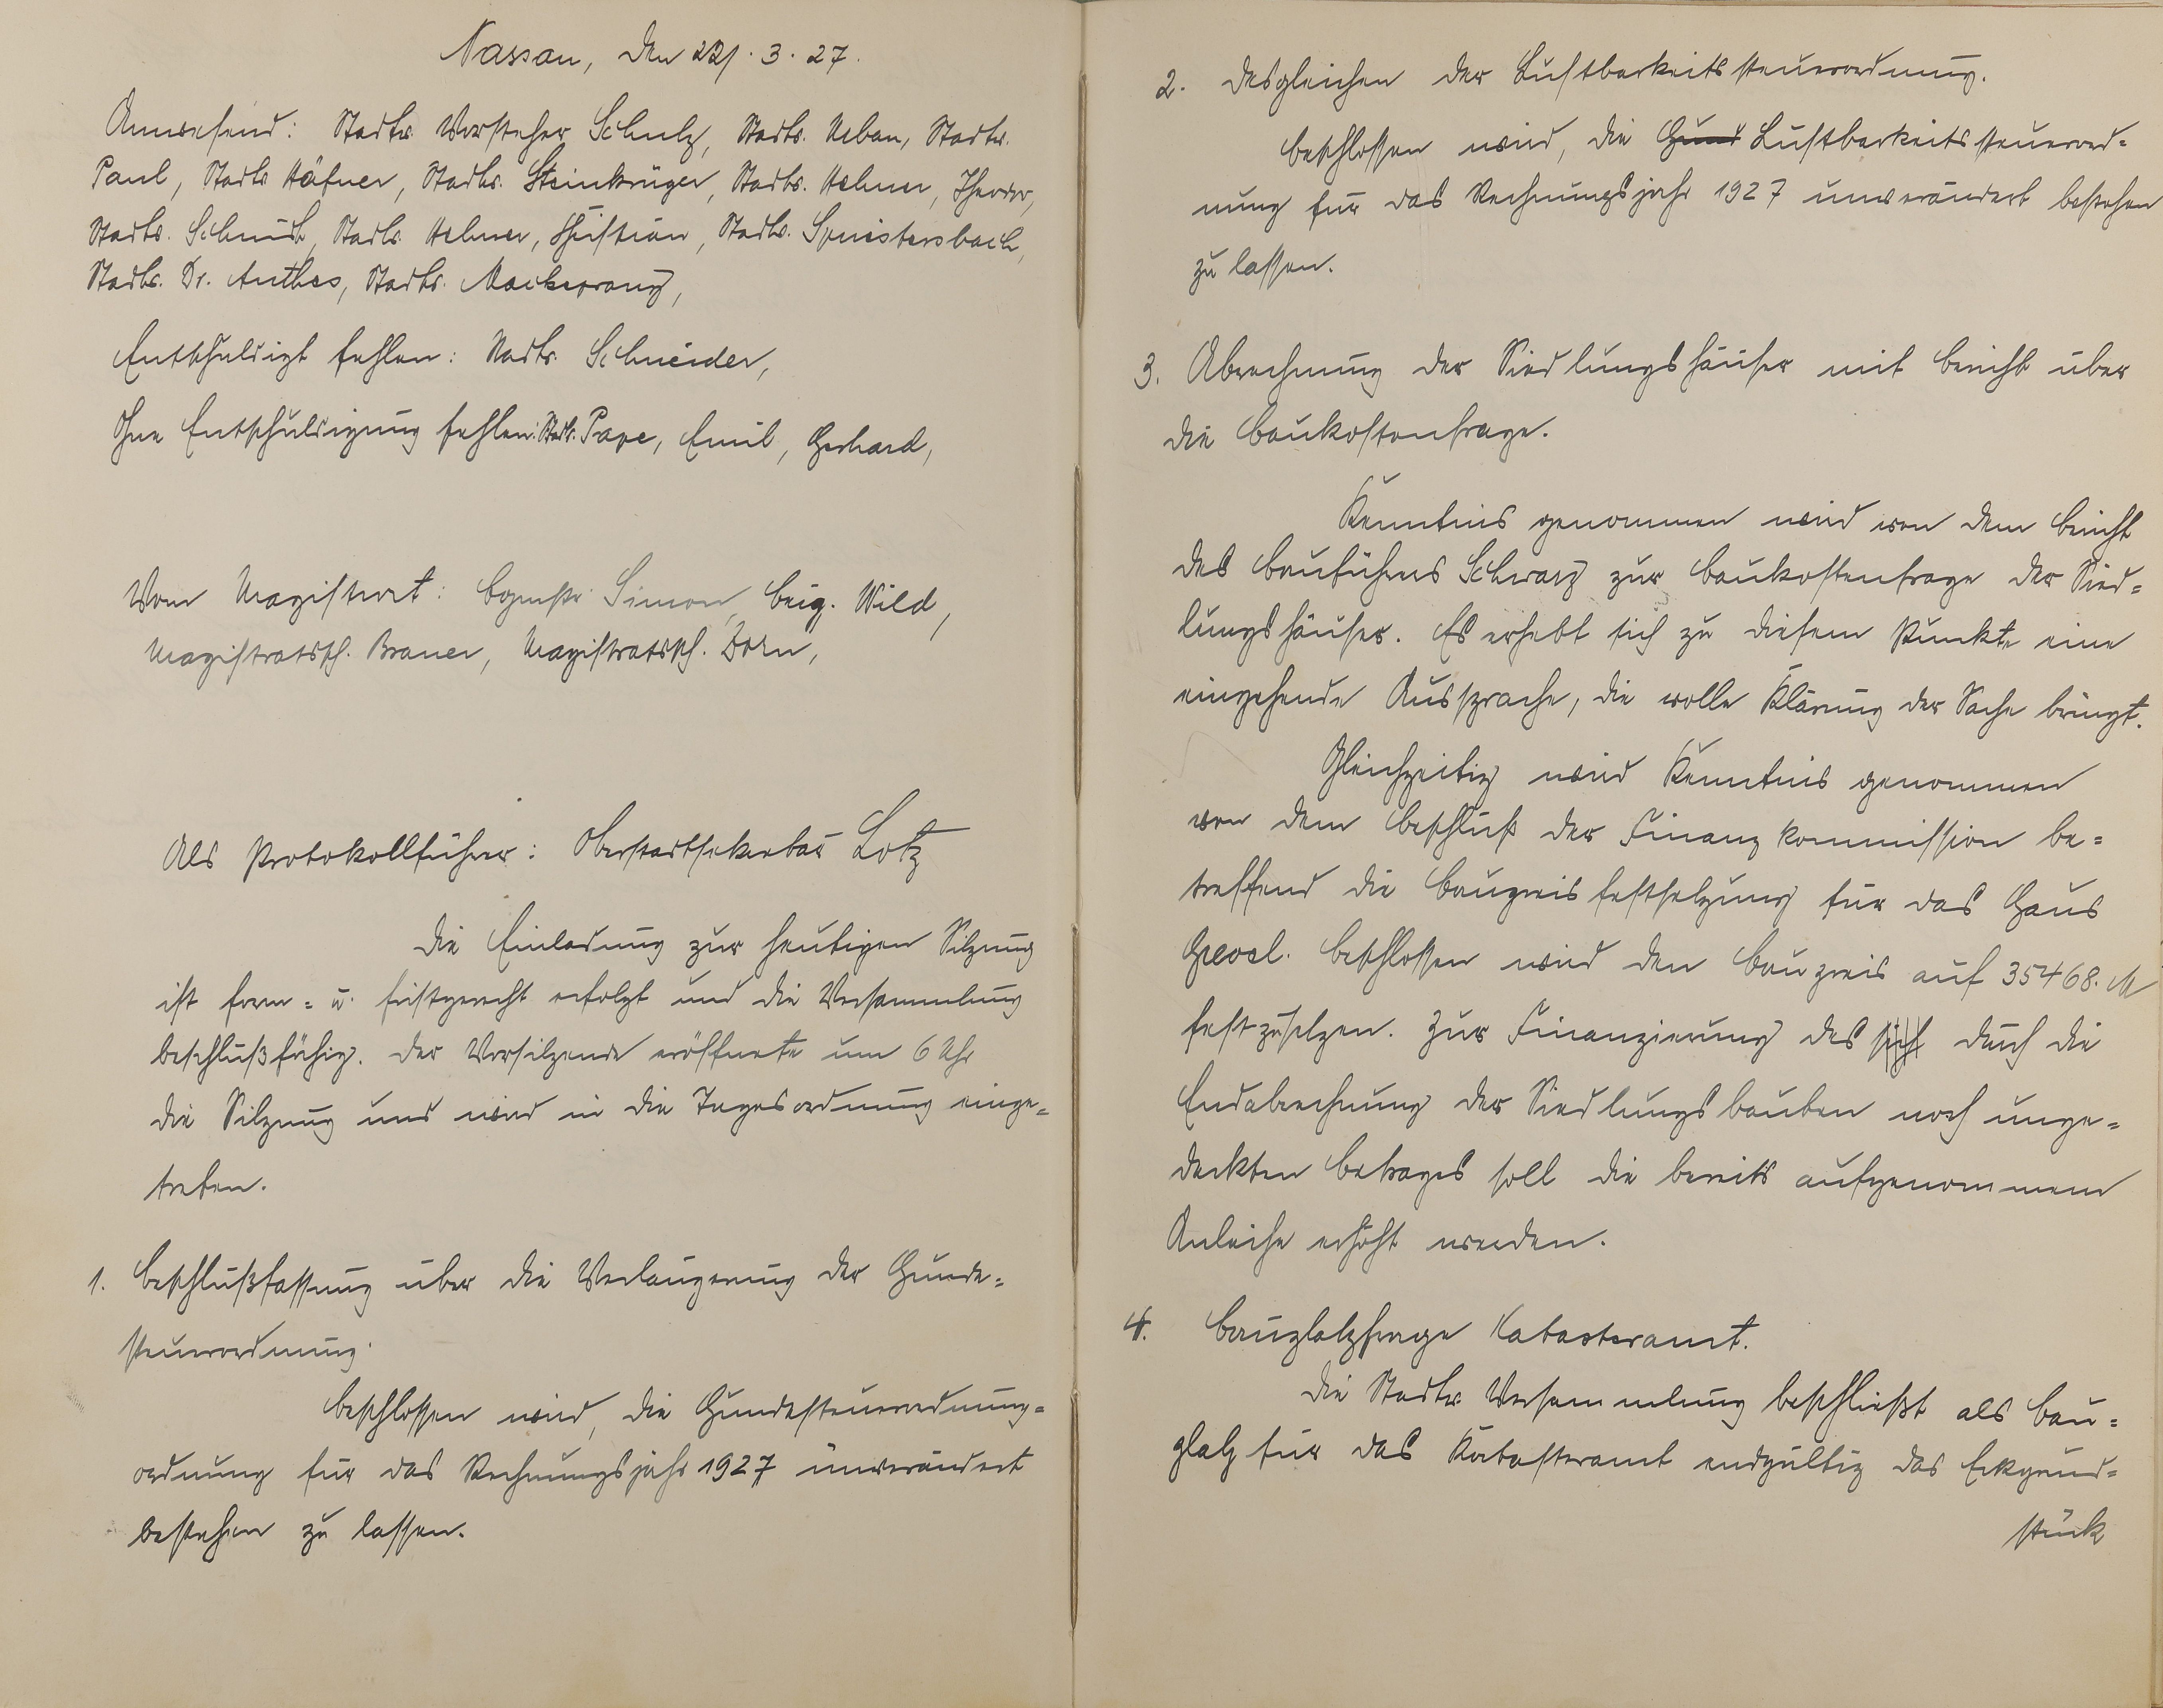 Nassau, den 221. 3. 27.
Anwesend: Stadtv. Vorsteher Schulz, Stadtv. Urban, Stadtv.
Paul, Stadtv. Häfner, Stadtv. Steinkrüger, Stadtv. Helmer, Theodor,
Stadtv. Schmidt, Stadtv. Helmer, Christian, Stadtv. Spriestersbach,
Stadtv. Dr. Anthes, Stadtv. Mackeprang,
Entschuldigt fehlen: Stadtv. Schneider,
Ohne Entschuldigung fehlen: Stadtv. Pape, Emil, Gerhard,
Vom Magistrat: Bgmstr. Simon, Beig. Wild,
Magistratssch. Brauer, Magistratssch. Dorn,
Als Protokollführer: Oberstadtsekretär Lotz
Die Einladung zur heutigen Sitzung
ist form- u. fristgerecht erfolgt und die Versammlung
beschlußfähig. Der Vorsitzende eröffnete um 6 Uhr
die Sitzung und wird in die Tagesordnung einge-
treten.
1. Beschlußfassung über die Verlängerung der Hunde-
steuerordnung.
Beschlossen wird, die Hundesteuerordnung-
ordnung für das Rechnungsjahr 1927 unverändert
bestehen zu lassen.
2. Desgleichen der Lustbarkeitssteuerordnung.
Beschlossen wird, die Hund Lustbarkeitssteuerord-
nung für das Rechnungsjahr 1927 unverändert bestehen
zu lassen.
3. Abrechnung der Siedlungshäuser mit Bericht über
die Baukostenfrage.
Kenntnis genommen wird von dem Bericht
des Bauführers Schwarz zur Baukostenfrage der Sied-
lungshäuser. Es erhebt sich zu diesem Punkte eine
eingehende Aussprache, die volle Klärung der Sache bringt.
Gleichzeitig wird Kenntnis genommen
von dem Beschluß der Finanzkommission be-
treffend die Baupreisfestsetzung für das Haus
Beschlossen wird den Baupreis auf 35468. M
festzusetzen. Zur Finanzierung des sich durch die
Endabrechnung der Siedlungsbauten noch unge-
deckten Betrages soll die bereits aufgenommene
Anleihe erhöht werden.
4. Bauplatzfrage Katasteramt.
Die Stadtv. Versammlung beschließt als Bau-
platz für das Katasteramt endgültig das Eckgrund-
stück